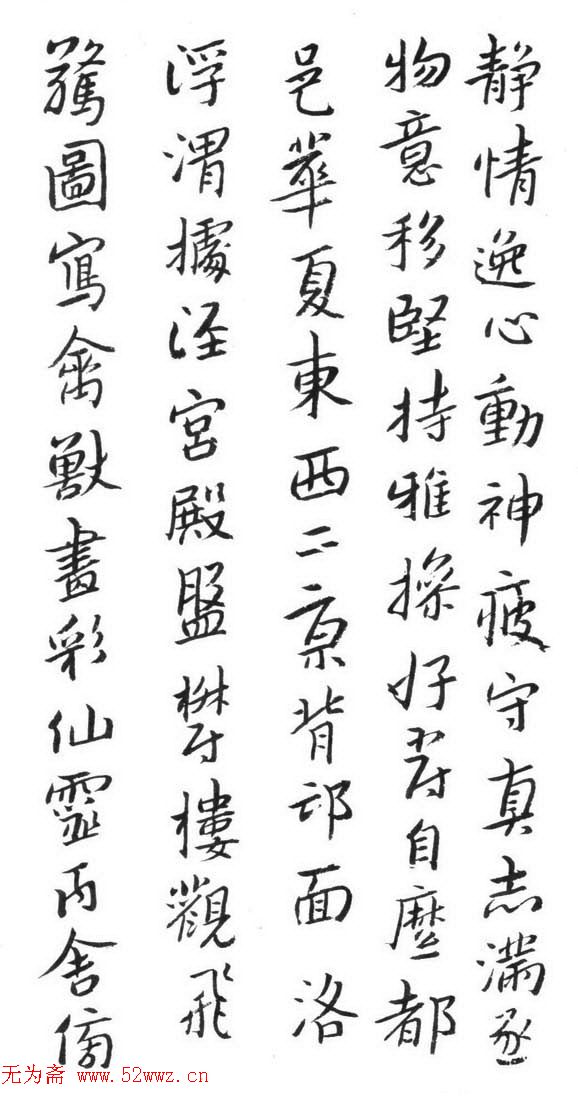 静情逸心動神疲守真志滿逐
物意移堅持雅操好爵自縻都
邑華夏東西二京背邙面洛
浮渭據涇宮殿盤欝樓觀飛
驚圖寫禽獸畫彩仙靈丙舍傍
无为斋 www.52wwz.cn